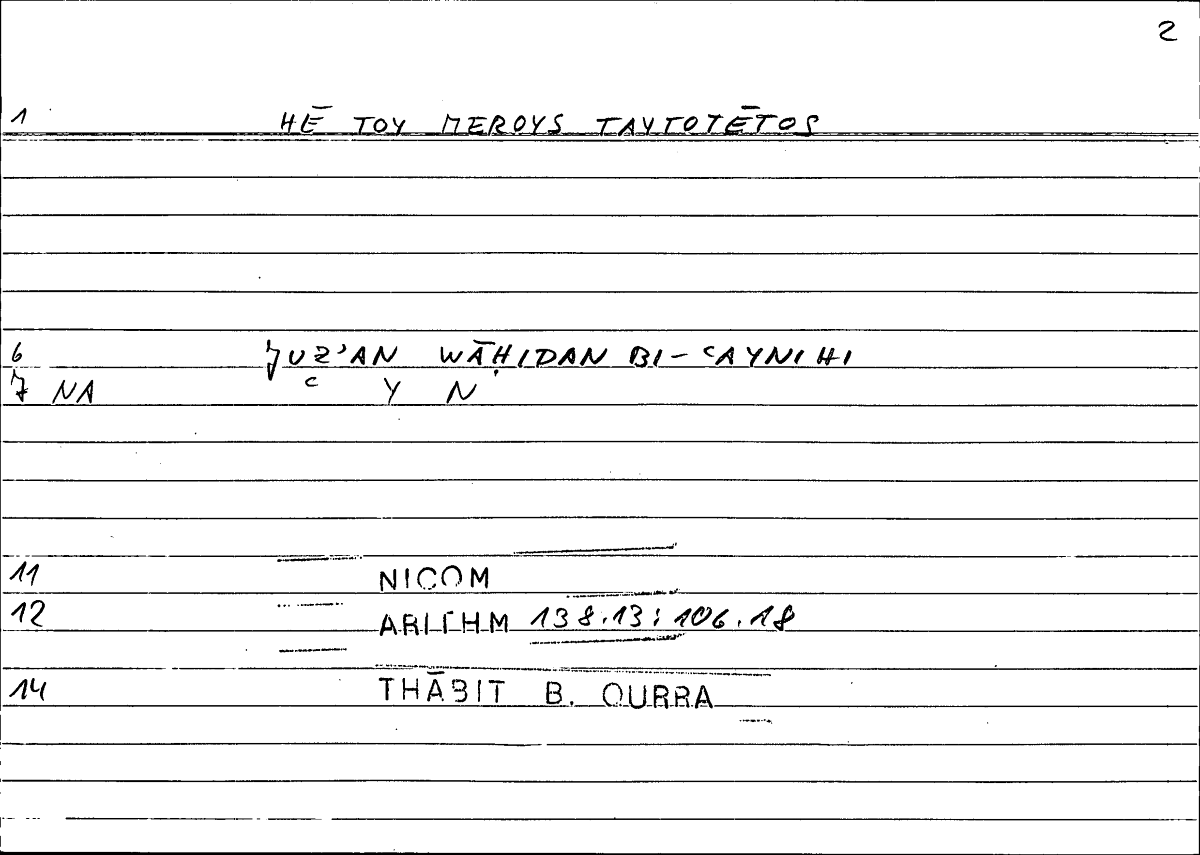 2
1 HĒ TOY MEROYS TAYTOTĒTOS
6 JUZʾAN WĀḤIDAN BI-ʿAYNIHI
7 NA ʿ Y N
11 NICOM
12 ARITHM 138.13; 106.18
14 THĀBIT B. QURRA